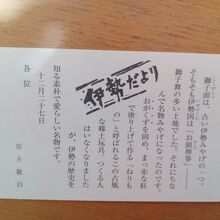 獅子頭は、古い伊勢みやげの一つ。
そもそも伊勢国は「お頭神事」
獅子舞の多い土地でした。それにちな
んで名物みやげになったのです。
おがくずを固め、まっ赤な紅
で塗り上げて作る「ねりも
の」と呼ばれるこの古風
な郷土玩具、つくる人
はいなくなりました
が、伊勢の歴史を
知る素朴で愛らしい名物です。
伊勢だより
十二月二十七日
店主敬白
各位